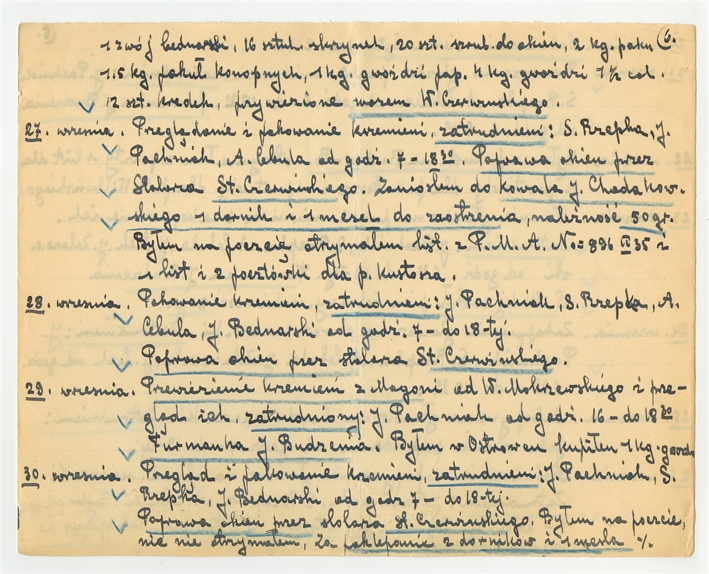 6.
1 zwój bednarski, 16 sztuk. skrzynek, 20 szt. szrub. do okien, 2 kg. paku
1.5 kg. pakuł konopnych, 1 kg. gwoździ pap. 4 kg. gwoździ 1½ cal.
12 szt. kredek, przywiezione wozem W. Czerwińskiego.
27. wresnia. Preglądanie i pakowanie kremieni, zatrudnieni: S. Rzepka, J.
Pachniak, A. Cebula od godz. 7 - 18 30. Poprawa okien przez
Stolarza St. Czerwińskiego. Zaniosłem do kowala J. Chodakow-
skiego 1 dornik i 1 mesel do zaostrenia, należność 50 gr.
Byłem na poczcie otrymałem list. z P. M. A. No = 896 II 35 z
1 list, i 2 pocztówki dla p. kustosza.
28. wresnia. Pakowanie kremieni, zatrudnieni: J. Pachniak, S. Rzepka, A.
Cebula, J. Bednarski od godz. 7 - do 18-tej.
Poprawa okien przez stolarza St. Czerwińskiego.
29. wresnia. Prewiezienie kremieni z Magoni od W. Mokrzewskiego i pre-
gląd ich, zatrudniony: J. Pachniak od godz. 16 - do 18 30
Furmanka J. Budzenia. Byłem w Ostrowcu kupiłem 1 kg.
30. wresnia. Pregląd i pakowanie kremieni, zatrudnieni: J. Pachniak, S.
Rzepka, J. Bednarski od godz 7 - do 18-tej.
Poprawa okien przez stolarza St. Czerwińskiego. Byłem na poczcie,
nic nie otrymałem, Za poklepanie 2 dorników i 1 mesla %.